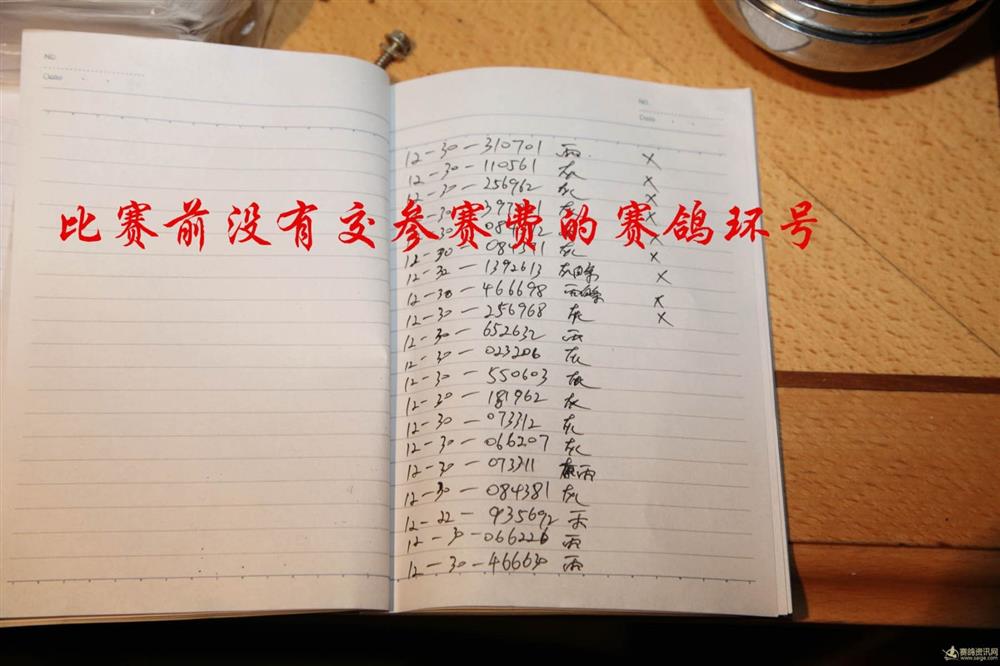 NO.
Date
NO.
Date
12-30-310701 雨. ×
12-30-110561 灰 ×
12-30-256962 灰 ×
比赛前没有交参赛费的赛鸽环号
12-30-084341 灰 ×
12-32-1392613 灰白条 ×
12-30-466698 雨白条 ×
12-30-256968 灰 ×
12-30-652632 雨
12-30-023206 灰
12-30-550603 灰
12-30-181962 灰
12-30-073312 灰
12-30-066207 灰
12-30-073311 雨
12-30-084381 灰
12-22-935692
12-30-066226 雨
12-30-466630 雨
赛鸽资讯网
www.saige.com